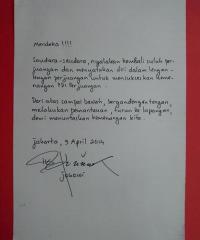 Merdeka !!!!
Saudara-saudara, nyalakan kembali suluh per-
juangan dan menyatakan diri dalam lengan-
lengan perjuangan untuk mensukseskan keme-
nangan PDI Perjuangan.
Dari atas sampai bawah, bergandengan tangan,
melakukan pemantauan, turun ke lapangan,
demi menuntaskan kemenangan kita.
Jakarta, 9 April 2014
Jokowi